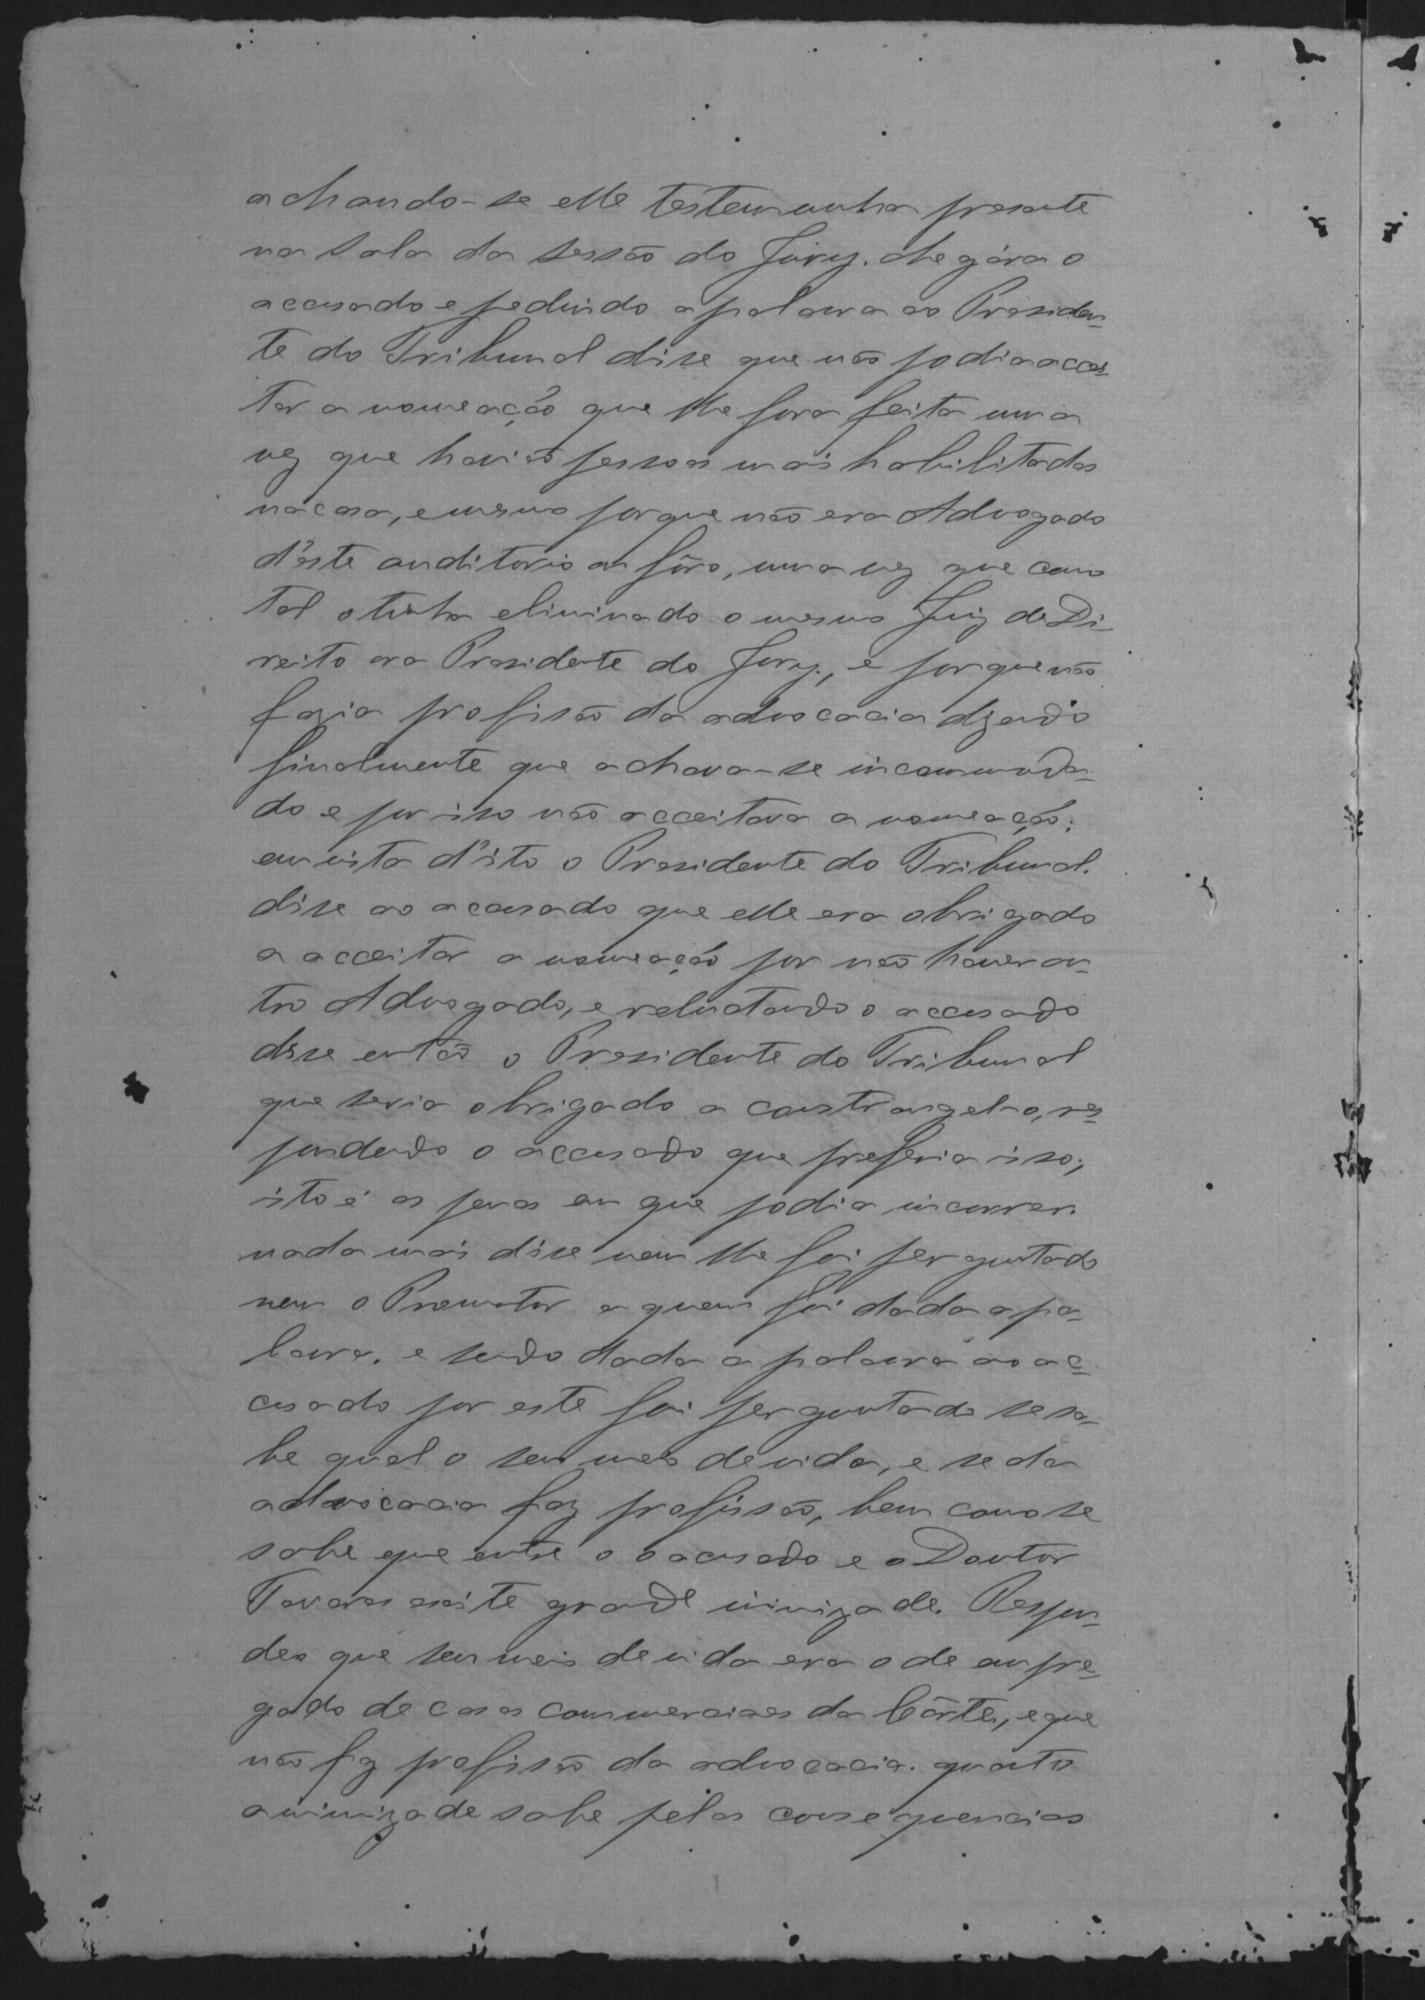 achando-se elle testemunha presente
na sala da sessão do Jury. chegára o
accusado e pedindo a palavra ao Presiden-
te do Tribunal disse que não podia accei-
tar a nomeação que lhe fora feita uma
vez que havião pessoas mais habilitadas
na casa, e mesmo porque não era Advogado
d'este auditorio ou fôro, uma vez que como
tal o tinha eliminado o mesmo Juiz de Di-
reito ora Presidente do Jury, e porque não
fazia profissão da advocacia dizendo
finalmente que achava-se incommoda-
do e por isso não acceitava a nomeação;
em vista d'isto o Presidente do Tribunal.
disse ao accusado que elle era obrigado
a acceitar a nomeação por não haver ou-
tro Advogado, e relutando o accusado
disse então o Presidente do Tribunal
que seria obrigado a constrangel-o, res-
pondendo o accusado que preferia isso,
isto é as penas em que podia incorrer.
nada mais disse nem lhe foi perguntado
nem o Promotor a quem foi dada a pa-
lavra. e sendo dada a palavra ao ac-
cusado por este foi perguntado se sa-
be qual o seu meio de vida, e se da
advocacia faz profissão, bem como se
sabe que entre o o acusado e o Doutor
Tavares existe grande inimizade. Respon-
deo que seu meio de vida era o de empre-
gado de casas commerciaes da Côrte, e que
não faz profissão da advocacia. quanto
a inimizade sabe pelas consequencias